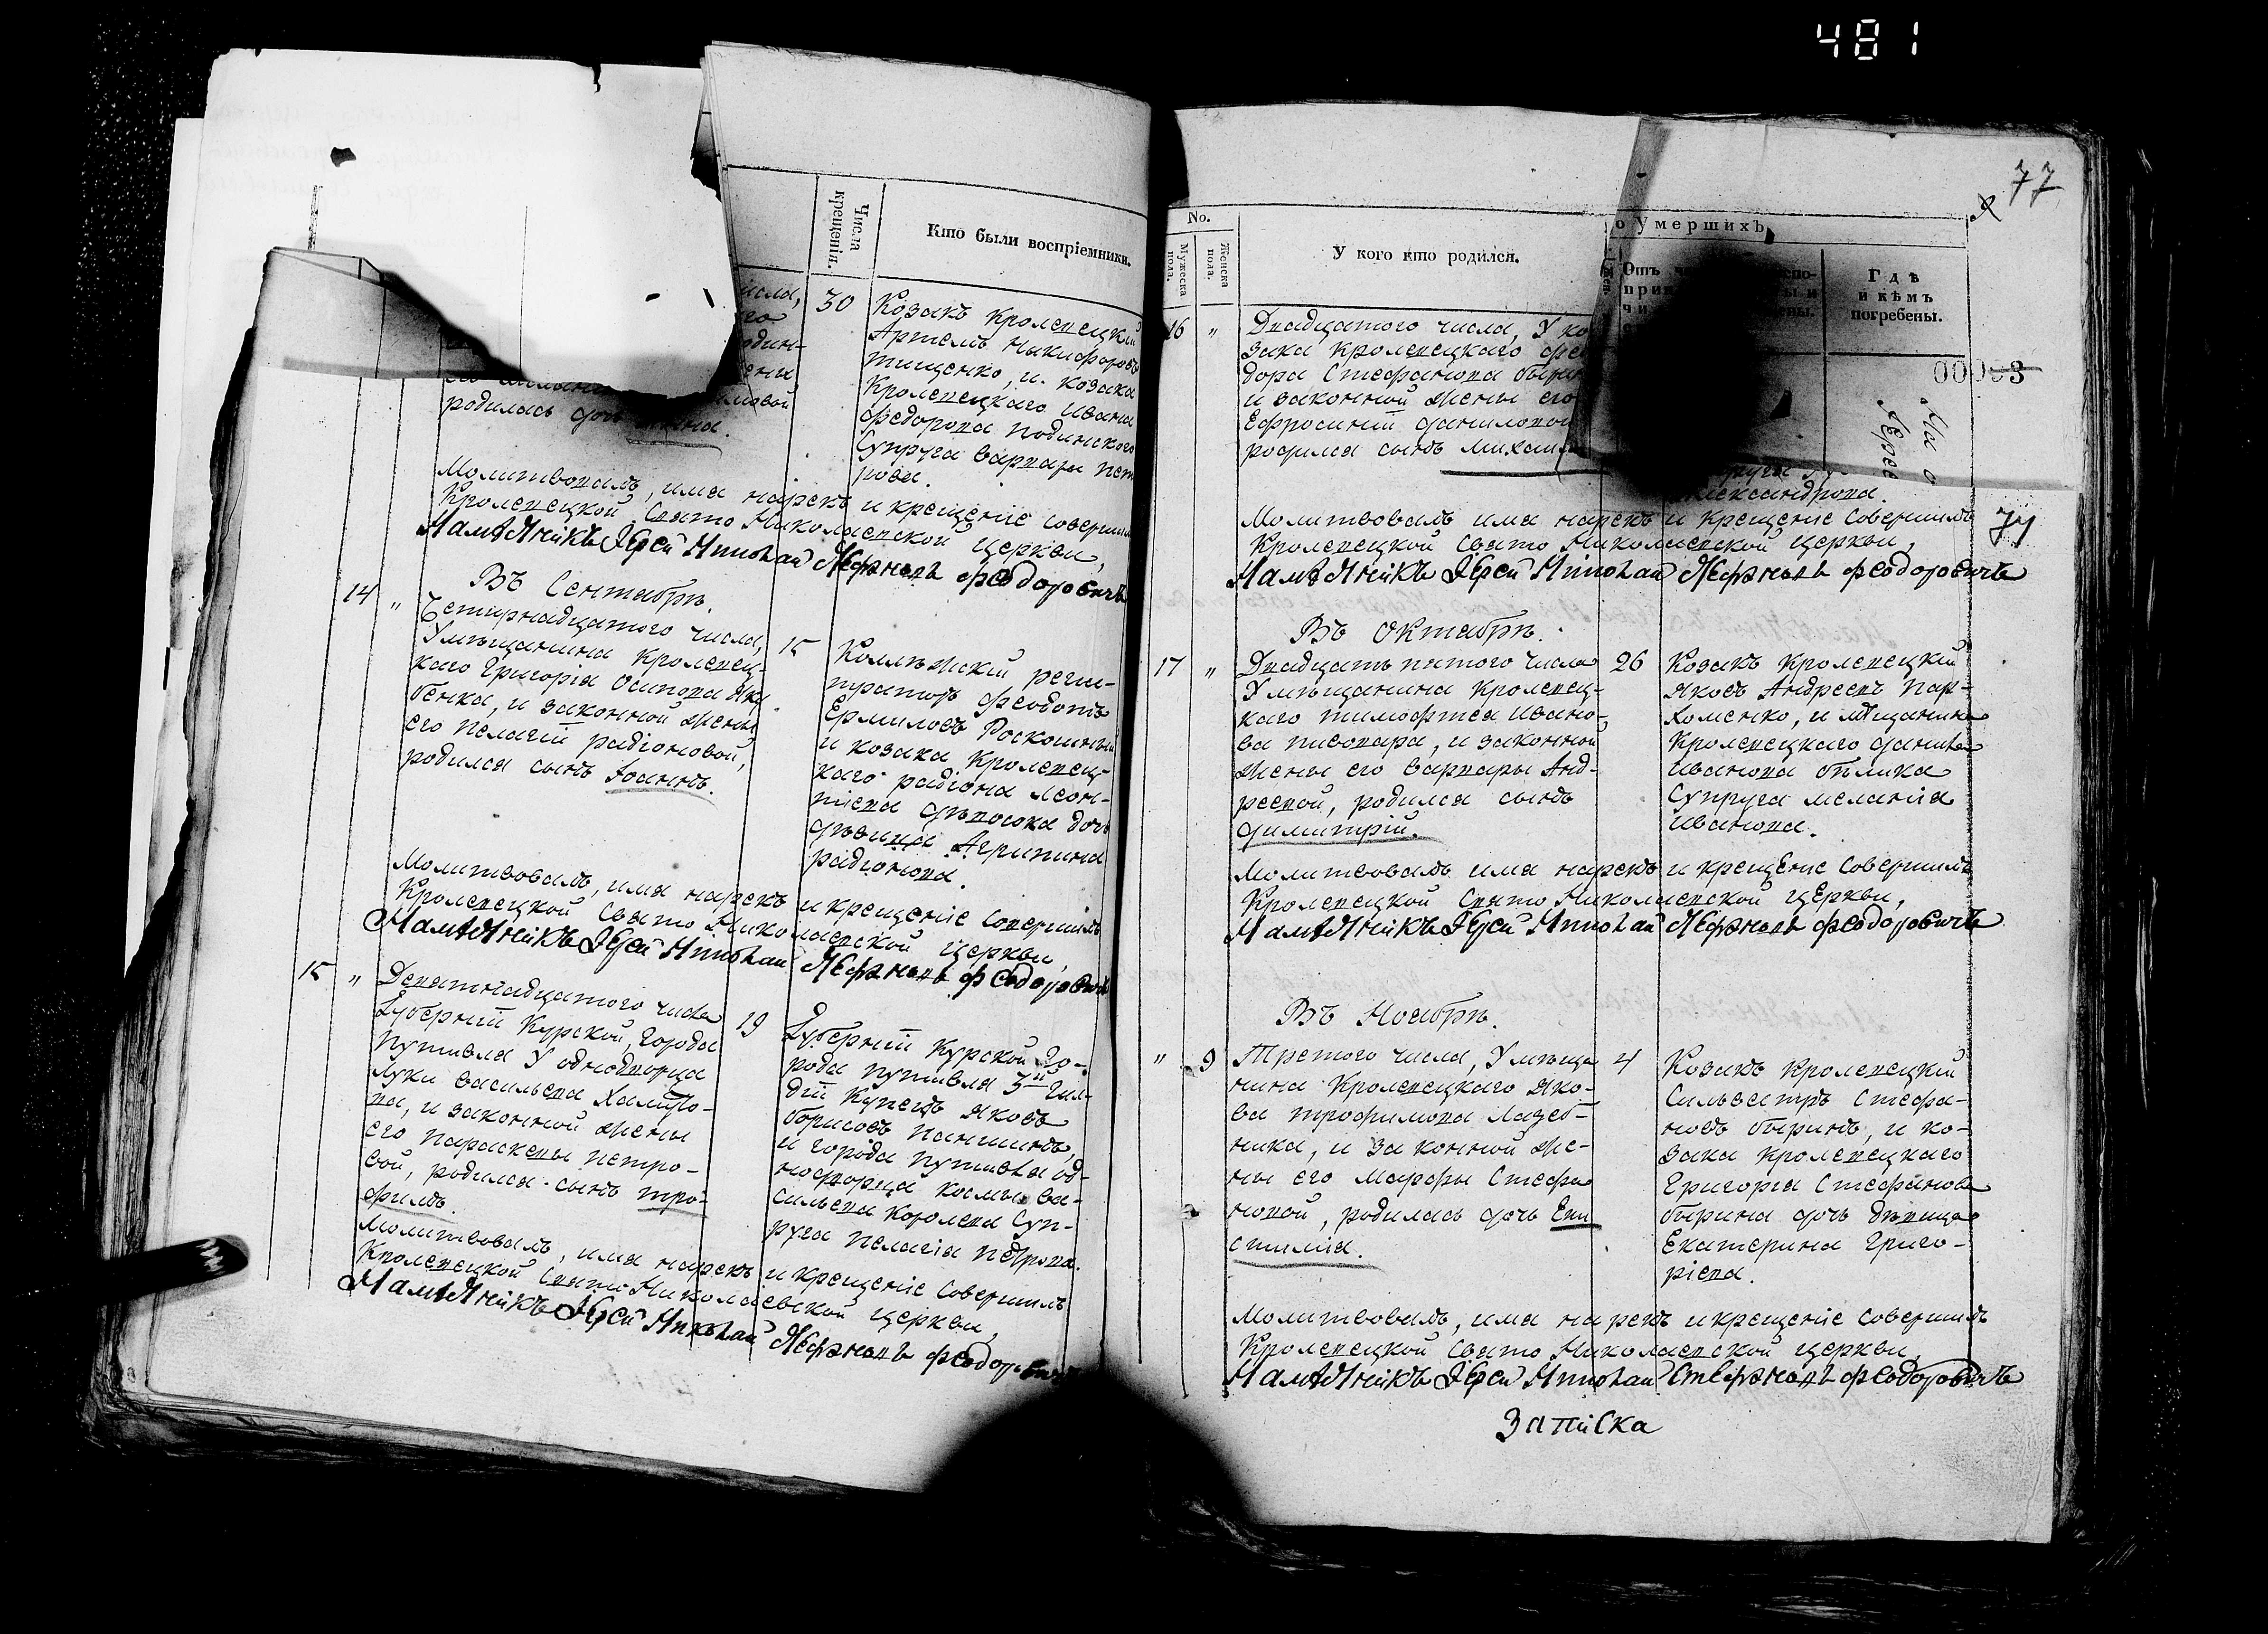 481
Числа
крещенія.
Кто были воспріемники.
30
Козакъ Кролевецкій
Артемъ Никифоровъ
Тищенко, и козака
Кролевецкаго Ивана
Федорова Подинского
Супруга Варвара Пет
рова.
родилась дочь
Молитвовалъ, имя нарекъ и крещеніе совершилъ
Кролевецкой Свято Николаевской церкви,
Намѣстникъ Іерей Николай Стефановъ Феодоровичъ
Въ Сентябрѣ.
14 "
Четырнадцатого числа,
У мѣщанина Кролевец-
каго Григорія Осипова Яку
бенка, и законной жены
его Пелагіи Радіоновой,
родился сынъ Іоаннъ.
15
Коллежскій реги-
страторъ Феодотъ
Ермиловъ Роскошный
и козака Кролевец-
каго Радіона Леон-
тіева Дѣвосока дочь
дѣвица Агрипина
Радіонова.
Молитвовалъ, имя нарекъ и крещеніе совершилъ
Кролевецкой Свято Николаевской церкви,
Намѣстникъ Іерей Николай Стефановъ Феодоровичъ
15 "
Девятнадцатого числа
Губерніи Курской, города
Путивля У однодворца
Луки Васильева Халито-
ва, и законной жены
его Параскевы Петро-
вой, родился сынъ Тро-
фимъ.
19
Губерніи Курской го-
рода Путивля 3й гил-
діи Купецъ Яковъ
Борисовъ Паншинъ,
и города Путивля од-
нодворца Космы Ва-
сильева Королева Суп-
руга Пелагія Петрова.
Молитвовалъ, имя нарекъ и крещеніе совершилъ
Кролевецкой Свято Николаевской церкви,
Намѣстникъ Іерей Николай Стефановъ Феодоровичъ
77
No.
Мужеска
пола.
Женска
пола.
У кого кто родился.
о умершихъ
Отъ
Гдѣ
и кѣмъ
погребены.
16 "
Двадцатого числа, У ко
зака Кролевецкаго Фео
дора Стефанова Бырин
и законной жены его
Ефросиніи Даниловой
родился сынъ Михаилъ
Александрова.
Молитвовалъ имя нарекъ и крещеніе совершилъ
Кролевецкой Свято Николаевской церкви,
Намѣстникъ Іерей Николай Стефановъ Феодоровичъ
77
Въ Октябрѣ.
17 "
Двадцать пятого числа
У мѣщанина Кролевец-
каго Тимофтея Ивано-
ва Пивовара, и законной
жены его Варвары Анд-
реевой, родился сынъ
Димитрій.
26
Козакъ Кролевецкій
Яковъ Андреевъ Пар-
хоменко, и мѣщанина
Кролевецкаго Данила
Иванова Бѣлика
Супруга Меланія
Иванова.
Молитвовалъ имя нарекъ и крещеніе совершилъ
Кролевецкой Свято Николаевской церкви,
Намѣстникъ Іерей Николай Стефановъ Феодоровичъ
Въ Ноябрѣ.
" 9
Третого числа, У мѣща
нина Кролевецкаго Яко-
ва Трофимова Лазеб-
ника, и законной же-
ны его Марфы Стефа
новой, родилась дочь Епи
стимія.
4
Козакъ Кролевецкій
Сильвестръ Стефа-
новъ Быринъ, и ко-
зака Кролевецкаго
Григорія Стефанова
Бырина дочь дѣвица
Екатерина Григо-
ріева.
Молитвовалъ, имя нарекъ и крещеніе совершилъ
Кролевецкой Свято Николаевской церкви,
Намѣстникъ Іерей Николай Стефановъ Феодоровичъ
Записка